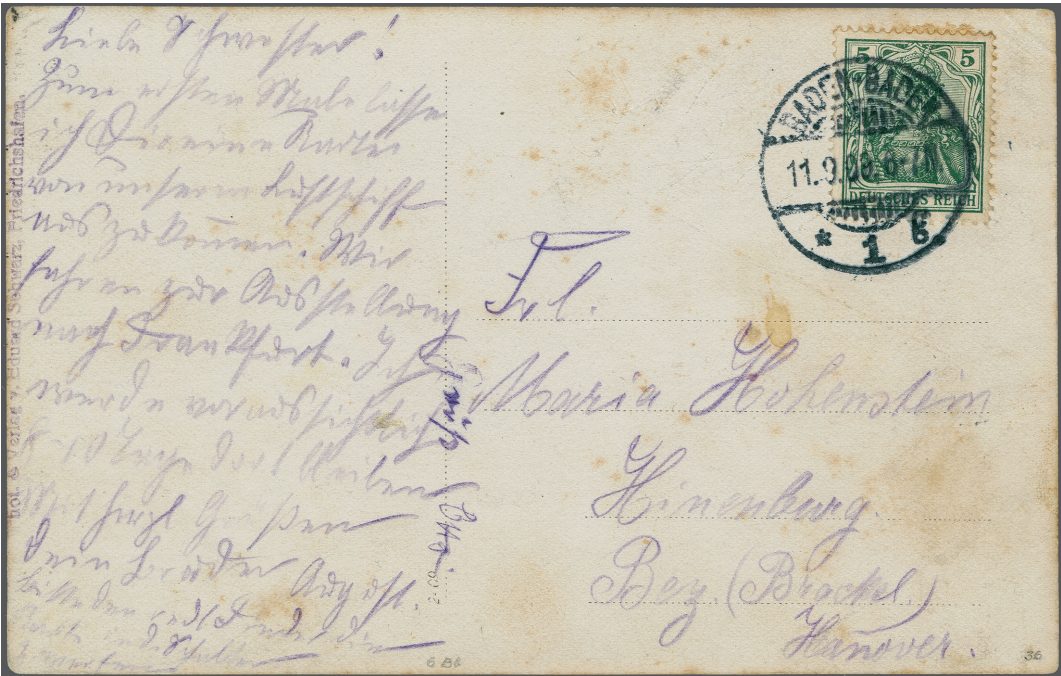 Liebe Schwester!
Zum ersten Male lasse
ich Dir eine Karte
von unserm Luftschiff
aus zukommen. Wir
fahren zur Ausstellung
nach Frankfurt. Ich
werde voraussichtlich
8-10 Tage dort bleiben
Mit herzl Grüßen
Dein Bruder August.
Bitte
Karte
Phot. & Verlag v. Eduard Schwarz, Friedrichshafen.
5 5
DEUTSCHES REICH
BADEN-BADEN
11.9.09.6-7N
* 1 g.
Frl.
Maria Hohenstein
Hinenburg
Bez. (Brockel.)
Hanover.
6 B6
36